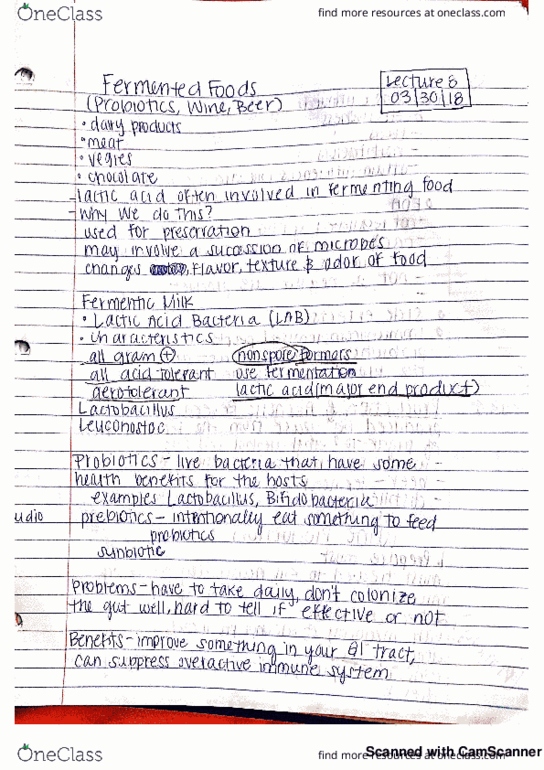 OneClass
find more resources at oneclass.com
Fermented Foods
Lecture 8
(Probiotics, Wine, Beer)
03/30/18
• dairy products
• meat
• vegies
• chocolate
-lactic acid often involved in fermenting food
-Why we do this?
used for preservation
may involve a sucession of microbes
changes flavor, texture & odor of food
Fermentic Milk
• Lactic Acid Bacteria (LAB)
• characteristics
all gram (+) nonspore formers
all acid-tolerant use fermentation
aerotolerant lactic acid (major end product)
Lactobacillus
Leuconostoc
Probiotics - live bacteria that have some
health benefits for the hosts
examples Lactobacillus, Bifidobacteria
udio
prebiotics - intentionally eat something to feed
probiotics
synbiotic
Problems - have to take daily, don't colonize
the gut well, hard to tell if effective or not
Benefits - improve something in your GI tract,
can suppress overactive immune system
OneClass
find more resources at oneclass.com
Scanned with CamScanner